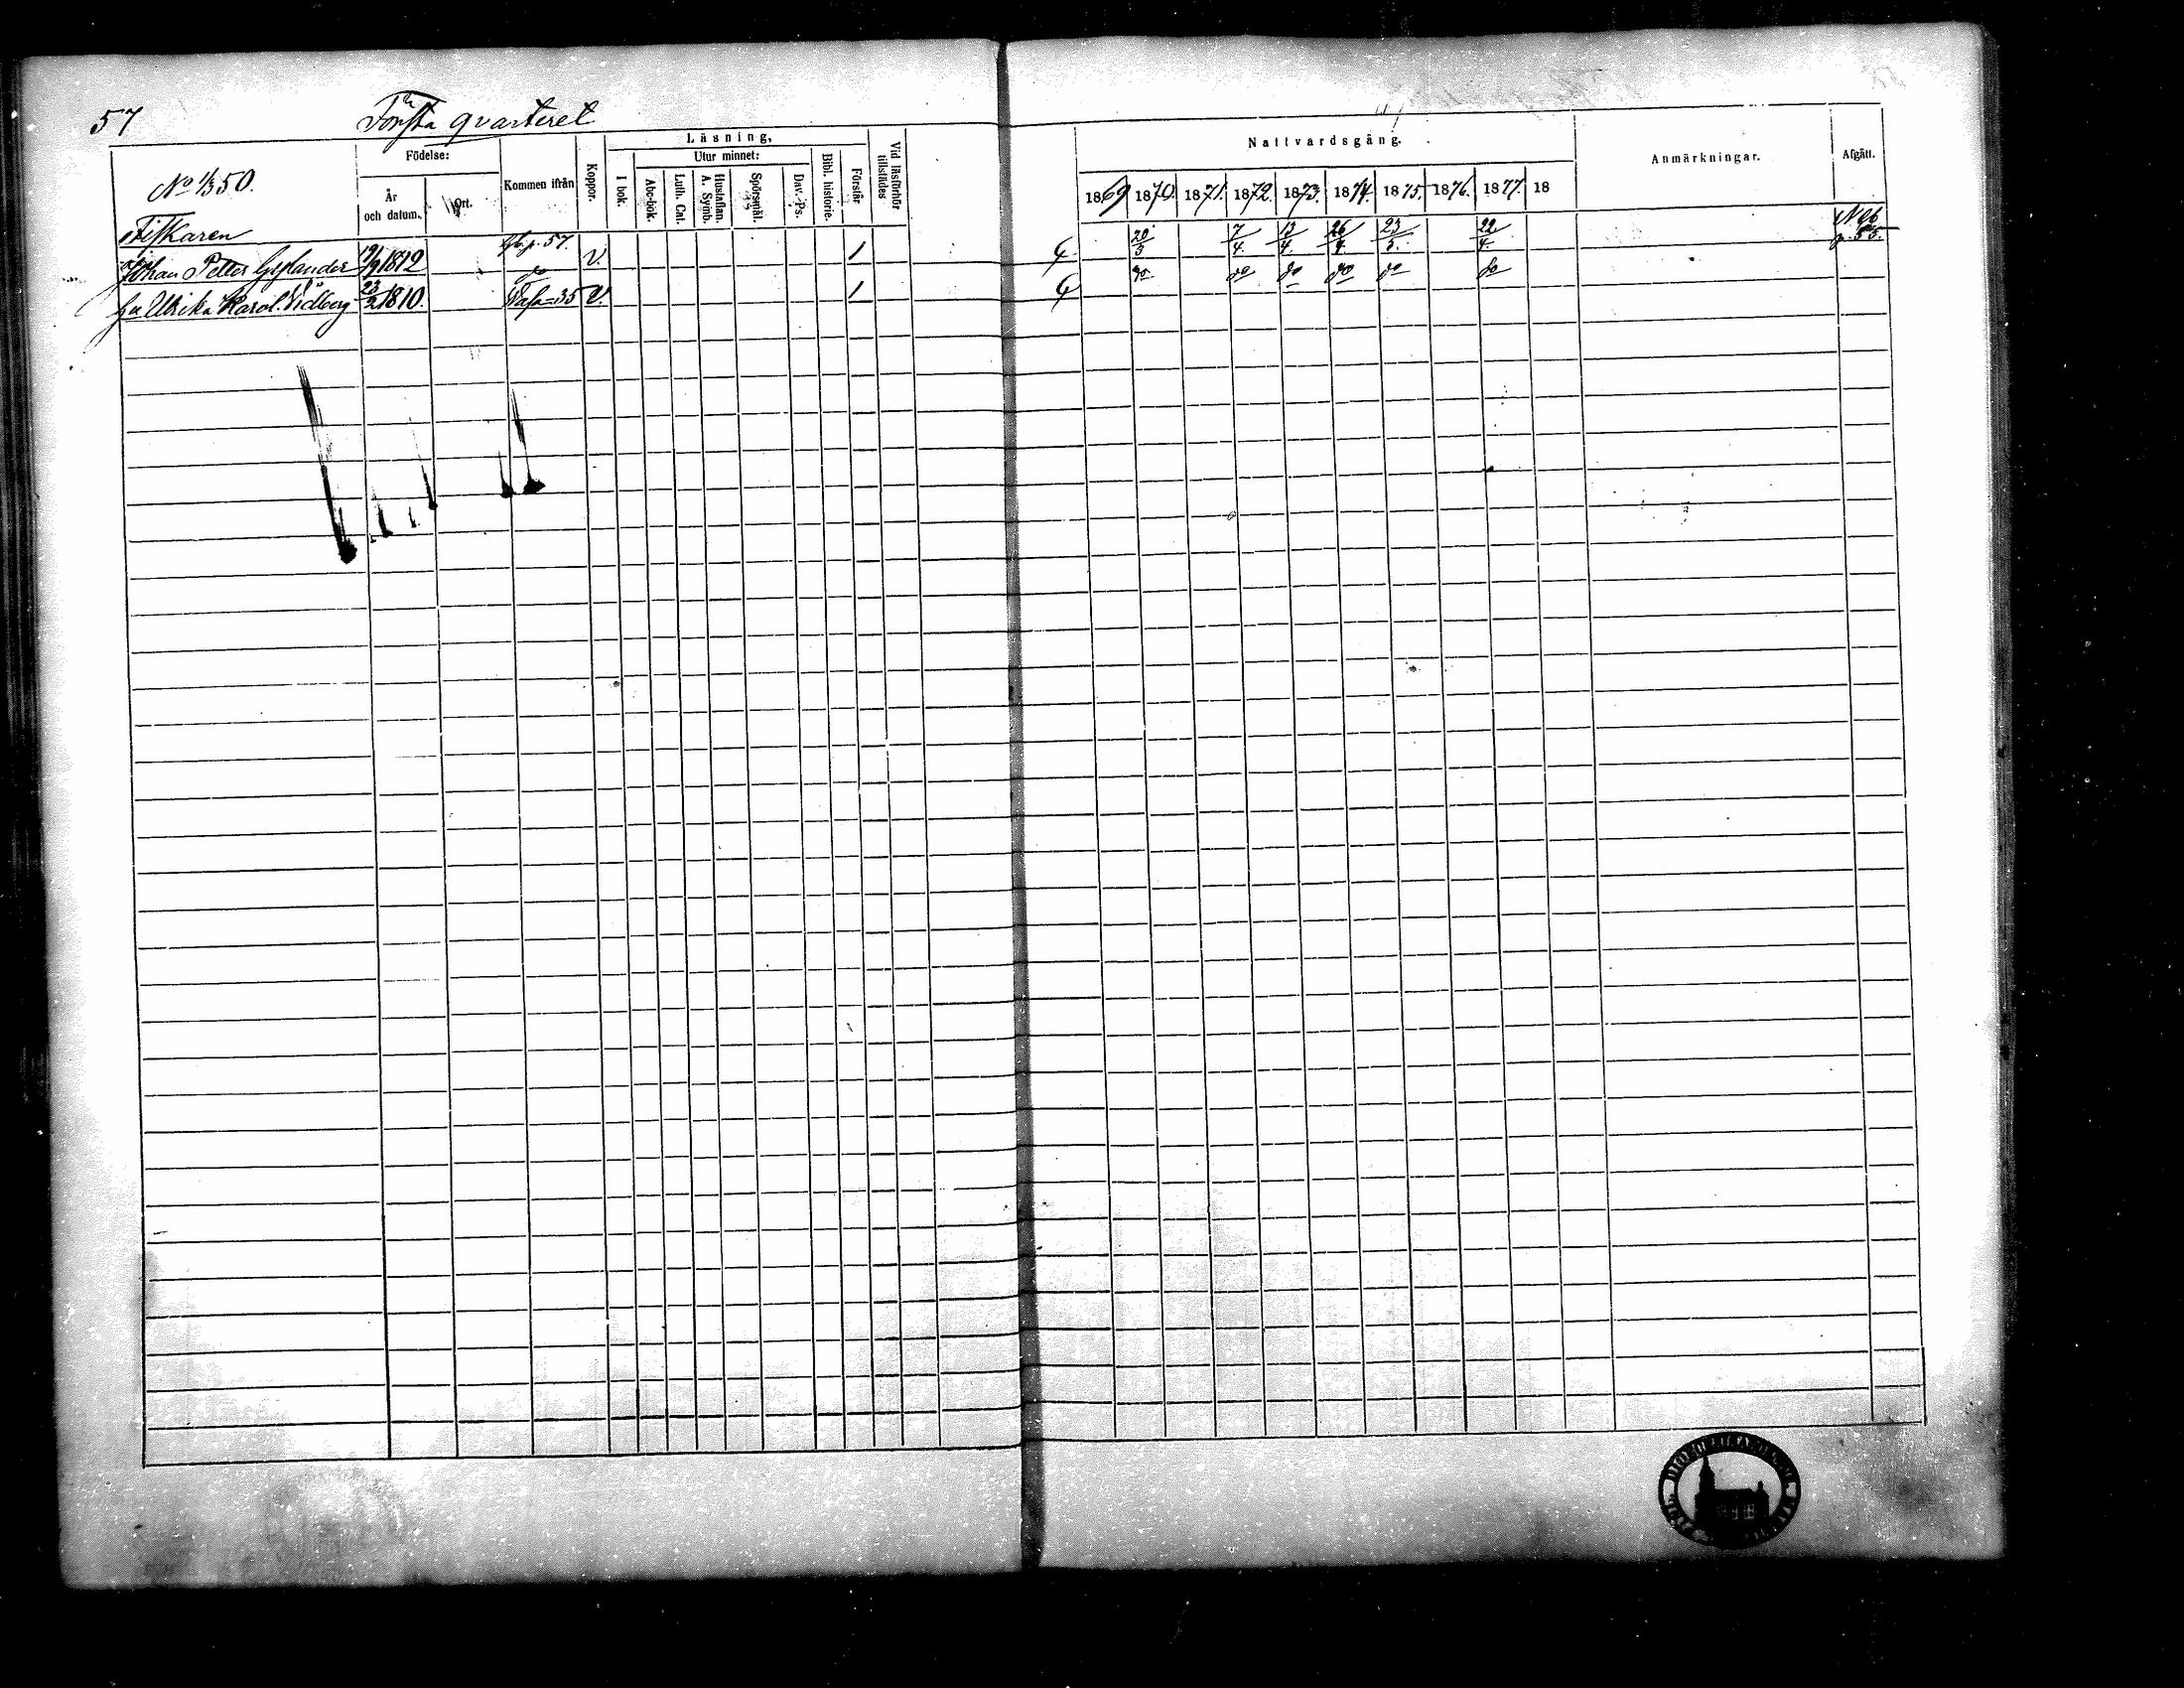 57
Första quarteret
Läsning,
Nattvardsgång.
Födelse:
Utur minnet:
Anmärkningar.
Afgått.
No 1/3 50.
År och datum.
Ort.
Kommen ifrån
Koppor.
I bok.
Abc-bok.
Luth. Cat.
Hustaflan. A. Symb.
Spörsmål.
Dav. Ps.
Bibl. historie.
Förstår
Vid läsförhör tillstädes
1869 1870. 1871. 1872. 1873. 1874. 1875. 1876. 1877. 18
Fiskaren
Johan Petter Gyllander 19/9 1812 p. 57. v. 1 20/3 7/4. 13/4. 26/4. 23/5. 22/4. p. 55.
hu Ulrika Karol. Vidberg 23/2 1810. Vasa 35 v. 1 do do do do do do